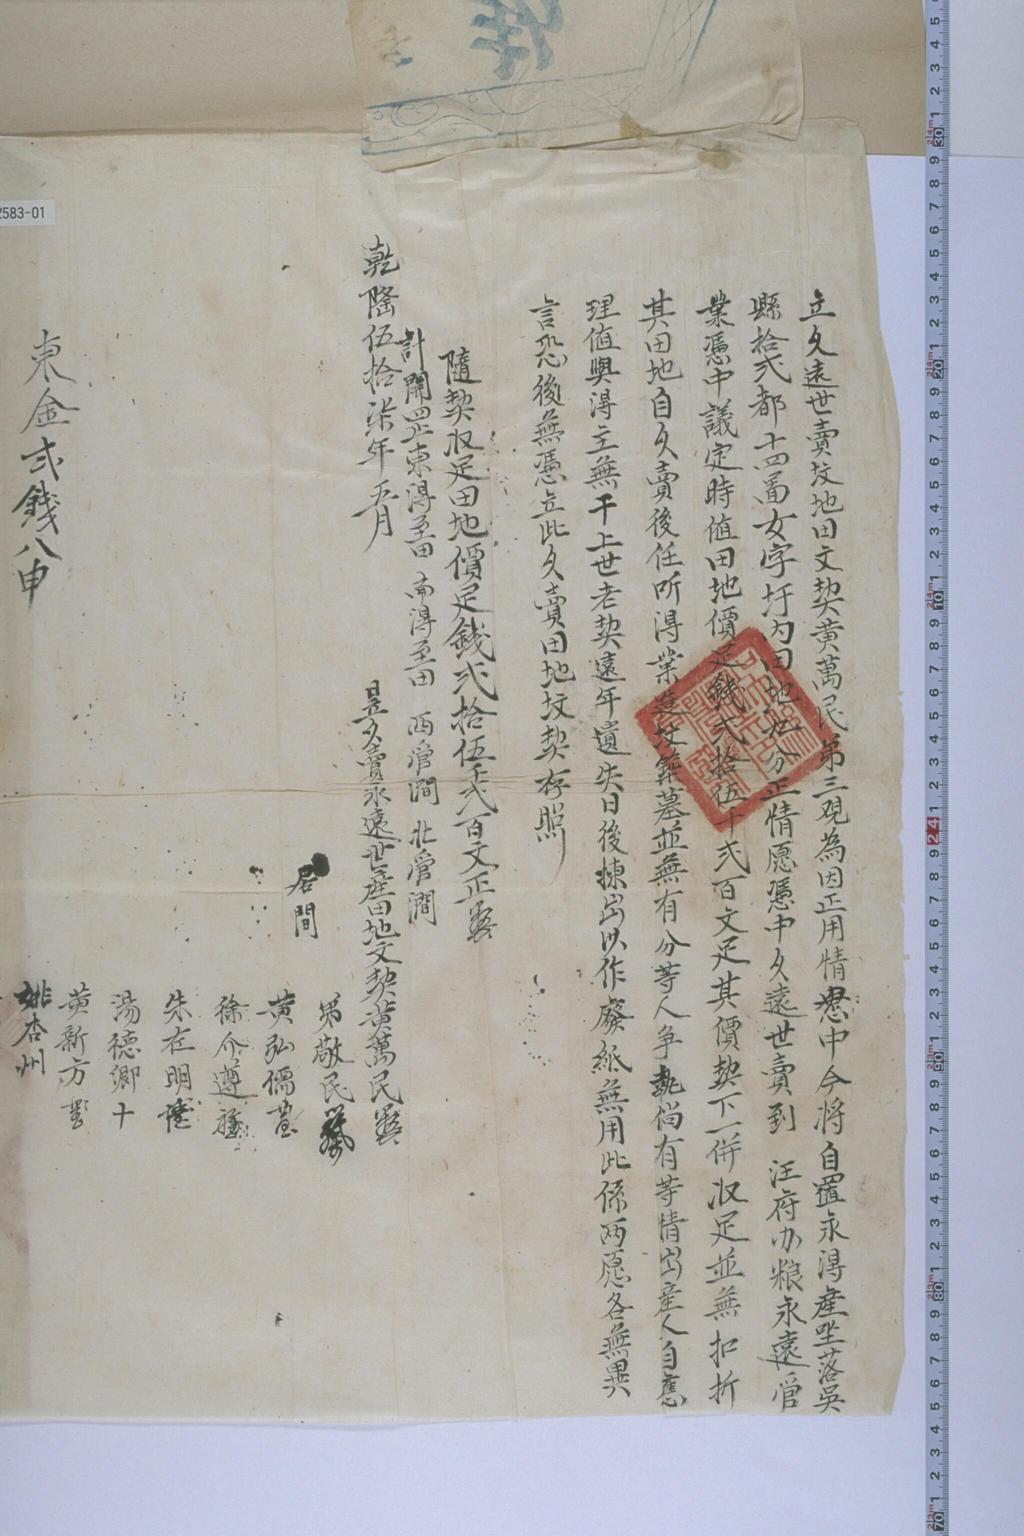 立久遠世賣坟地田文契黃萬民弟三觀為因正用情愿憑中今將自置永淂產坐落吳
縣拾弍都十四啚女字圩內田地分正情愿憑中久遠世賣到 汪府办粮永遠管
業憑中議定時值田地價足錢弍拾伍千弍百文足其價契下一併收足並無扣折
其田地自久賣後任听淂業造坟築墓並無有分等人爭執倘有等情出產人自應
理值與淂主無干上世老契遠年遺失日後揀出以作廢紙無用此係兩愿各無異
言恐後無憑立此久賣田地坟契存照
隨契收足田地價足錢弍拾伍千弍百文正
計開四址東淂至田 南淂至田 西管澗 北管澗
乾隆伍拾柒年五月
昰久賣永遠世產田地文契黃萬民
弟敬民
居間
黃弘儒
徐介遵
朱在明
湯德卿十
黃新方
姚杏州
東金弍錢八申
2583-01